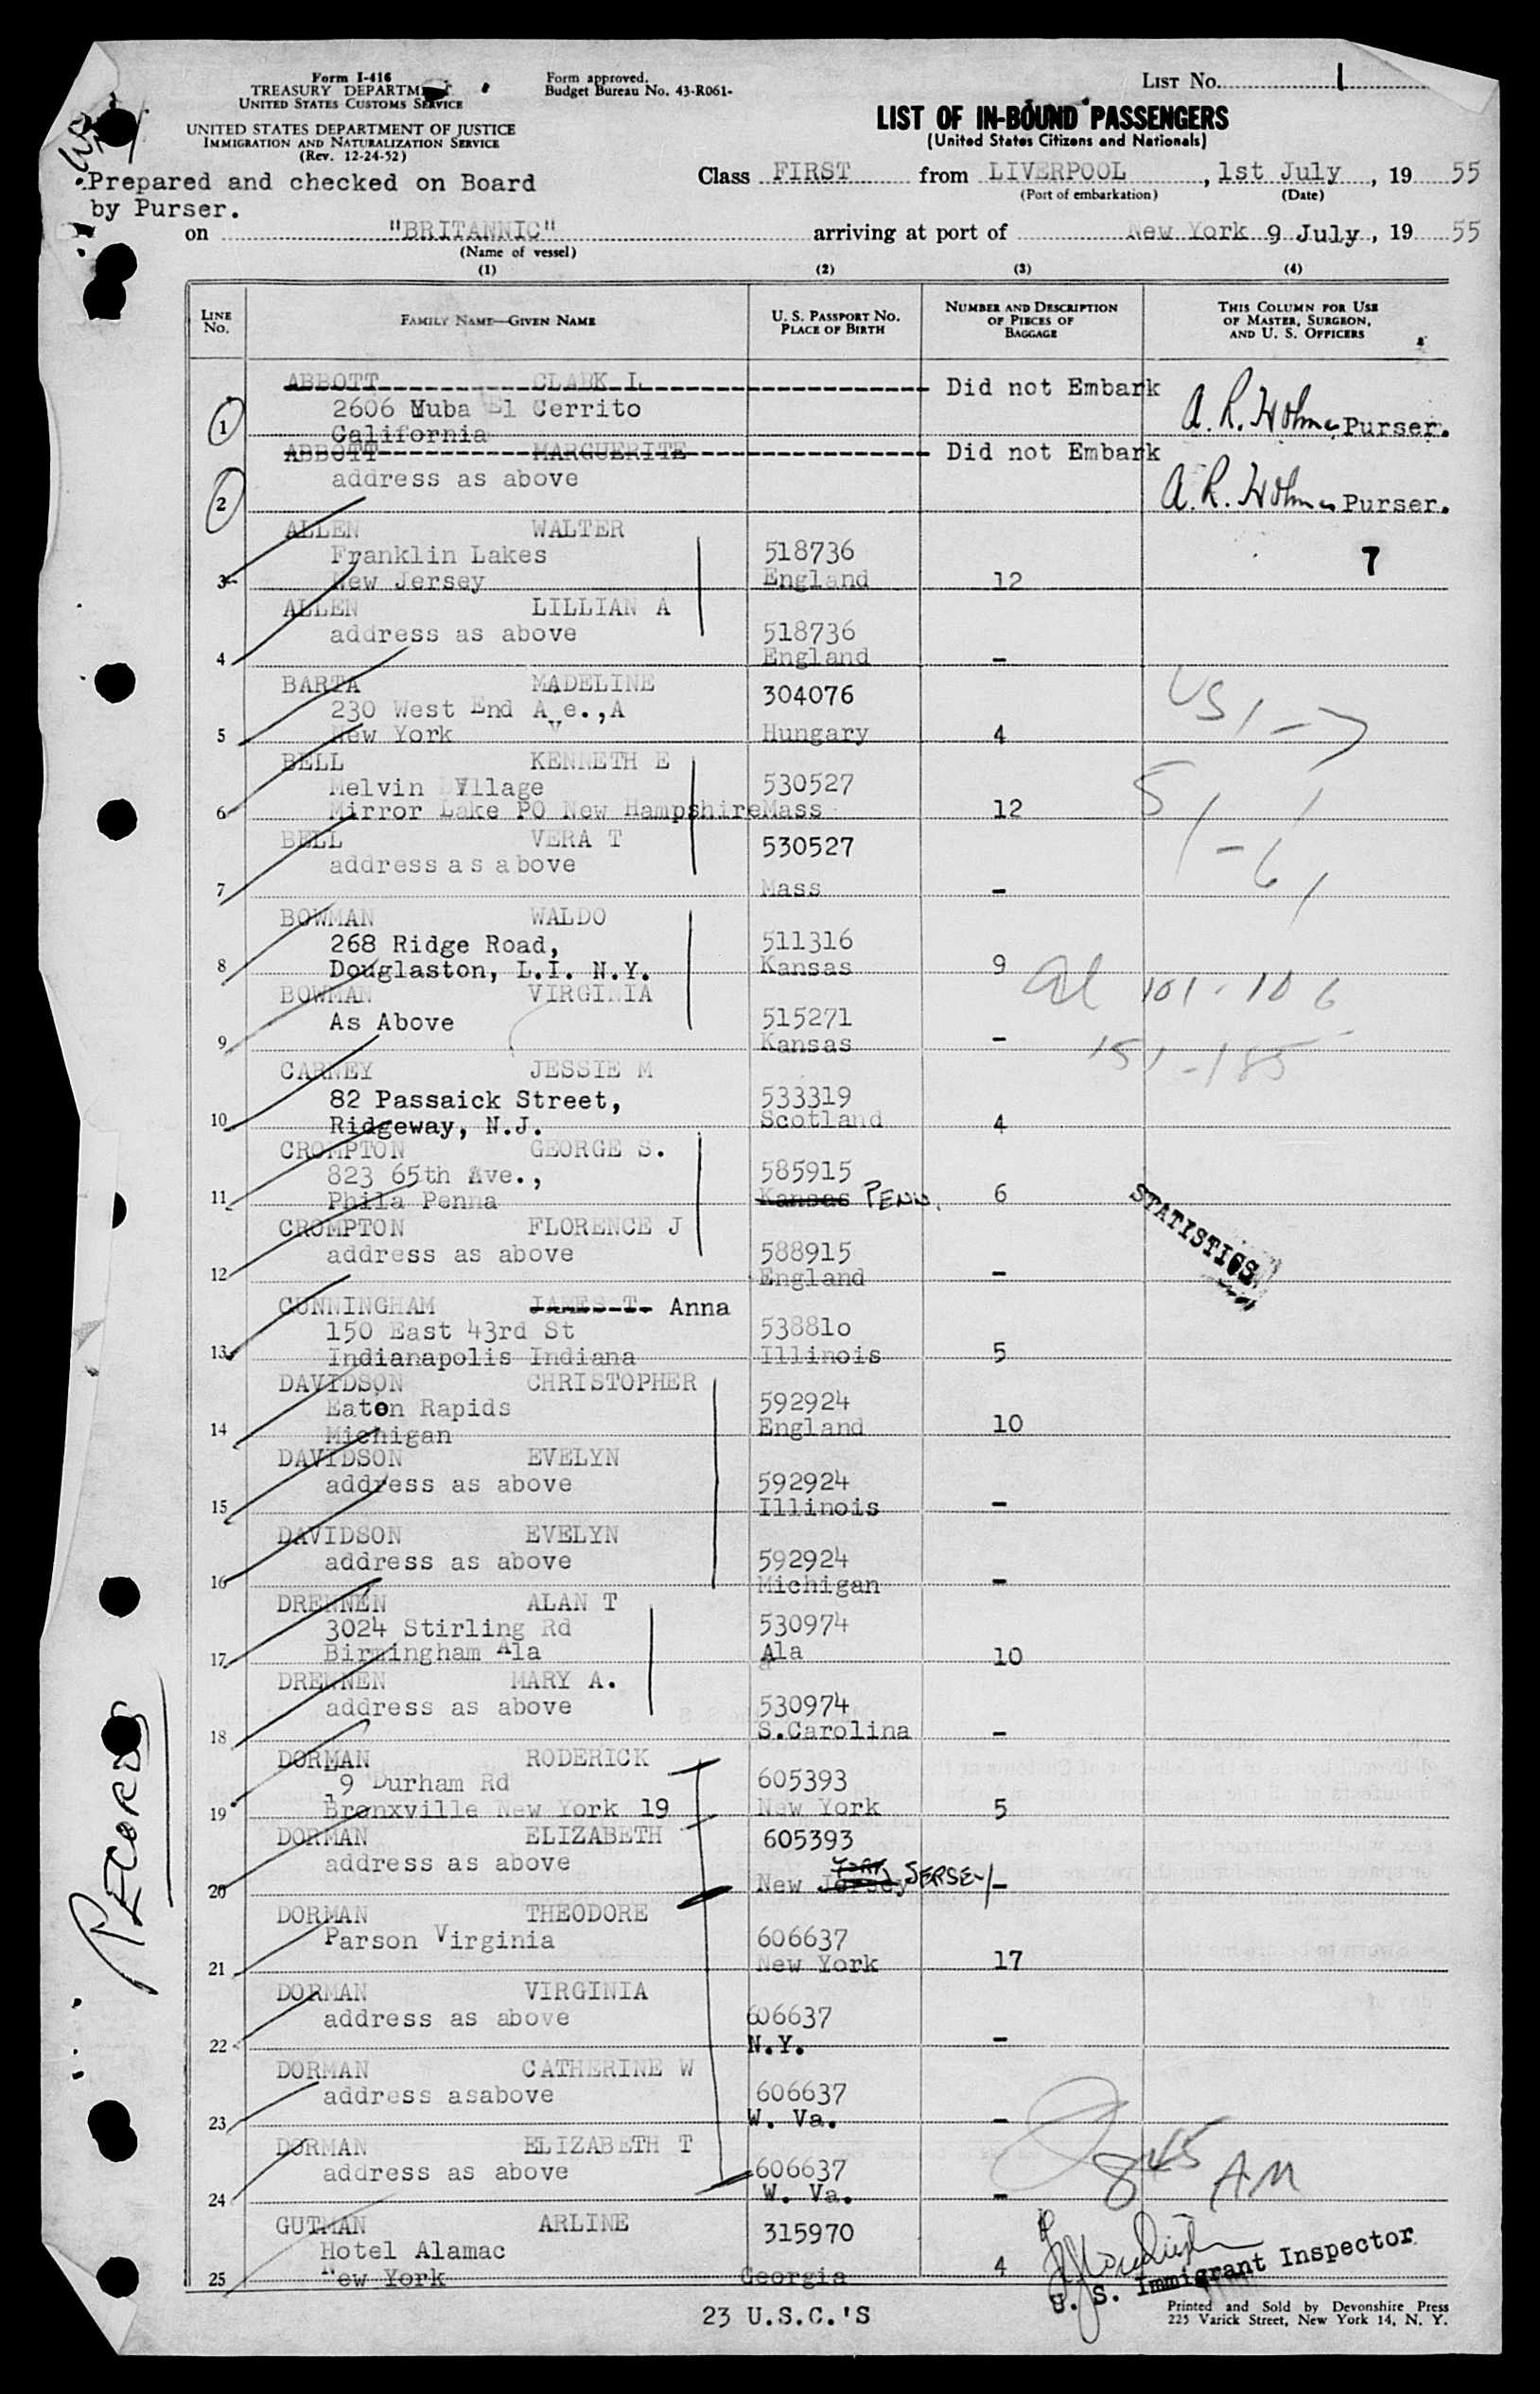 Form I-416
TREASURY DEPARTMENT
UNITED STATES CUSTOMS SERVICE
UNITED STATES DEPARTMENT OF JUSTICE
IMMIGRATION AND NATURALIZATION SERVICE
(Rev. 12-24-52)
Form approved.
Budget Bureau No. 43-R061-
LIST No. 1
LIST OF IN-BOUND PASSENGERS
(United States Citizens and Nationals)
Prepared and checked on Board
by Purser.
Class FIRST from LIVERPOOL, 1st July, 19 55
(Port of embarkation) (Date)
on "BRITANNIC" arriving at port of New York 9 July, 19 55
(Name of vessel)
(1) (2) (3) (4)
LINE No. FAMILY NAME—GIVEN NAME U. S. PASSPORT NO. PLACE OF BIRTH NUMBER AND DESCRIPTION OF PIECES OF BAGGAGE THIS COLUMN FOR USE OF MASTER, SURGEON, AND U. S. OFFICERS
ABBOTT CLARK L Did not Embark
2606 Muba El Cerrito
1 California A. R. Holmes Purser.
ABBOTT MARGUERITE Did not Embark
address as above
2 A. R. Holmes Purser.
ALLEN WALTER
Franklin Lakes 518736 7
3 New Jersey England 12
ALLEN LILLIAN A
address as above 518736
4 England -
BARTA MADELINE 304076
230 West End Ave., A
5 New York Hungary 4
US 1-7
BELL KENNETH E
Melvin Village 530527
6 Mirror Lake PO New Hampshire Mass 12
5 1-6
BELL VERA T 530527
address as above
7 Mass -
BOWMAN WALDO
268 Ridge Road, 511316
8 Douglaston, L.I. N.Y. Kansas 9
al 101-106
BOWMAN VIRGINIA
As Above 515271
9 Kansas -
151-185
CARNEY JESSIE M
82 Passaick Street, 533319
10 Ridgeway, N.J. Scotland 4
CROMPTON GEORGE S.
823 65th Ave., 585915
11 Phila Penna Kansas PENN. 6
STATISTICS
CROMPTON FLORENCE J
address as above 588915
12 England -
CUNNINGHAM JAMES T. Anna
150 East 43rd St 538810
13 Indianapolis Indiana Illinois 5
DAVIDSON CHRISTOPHER
Eaton Rapids 592924
14 Michigan England 10
DAVIDSON EVELYN
address as above 592924
15 Illinois -
DAVIDSON EVELYN
address as above 592924
16 Michigan -
DRENNEN ALAN T
3024 Stirling Rd 530974
17 Birmingham Ala Ala 10
DRENNEN MARY A.
address as above 530974
18 S.Carolina -
DORMAN RODERICK
9 Durham Rd 605393
19 Bronxville New York 19 New York 5
DORMAN ELIZABETH 605393
address as above
20 New Jersey York JERSEY -
DORMAN THEODORE
Parson Virginia 606637
21 New York 17
DORMAN VIRGINIA
address as above 606637
22 N.Y. -
DORMAN CATHERINE W
address asabove 606637
23 W. Va. -
DORMAN ELIZABETH T
address as above 606637
24 W. Va. -
8 45 AM
GUTMAN ARLINE 315970
Hotel Alamac
25 New York Georgia 4
U. S. Immigrant Inspector
23 U.S.C.'S
Printed and Sold by Devonshire Press
225 Varick Street, New York 14, N. Y.
RECORDS